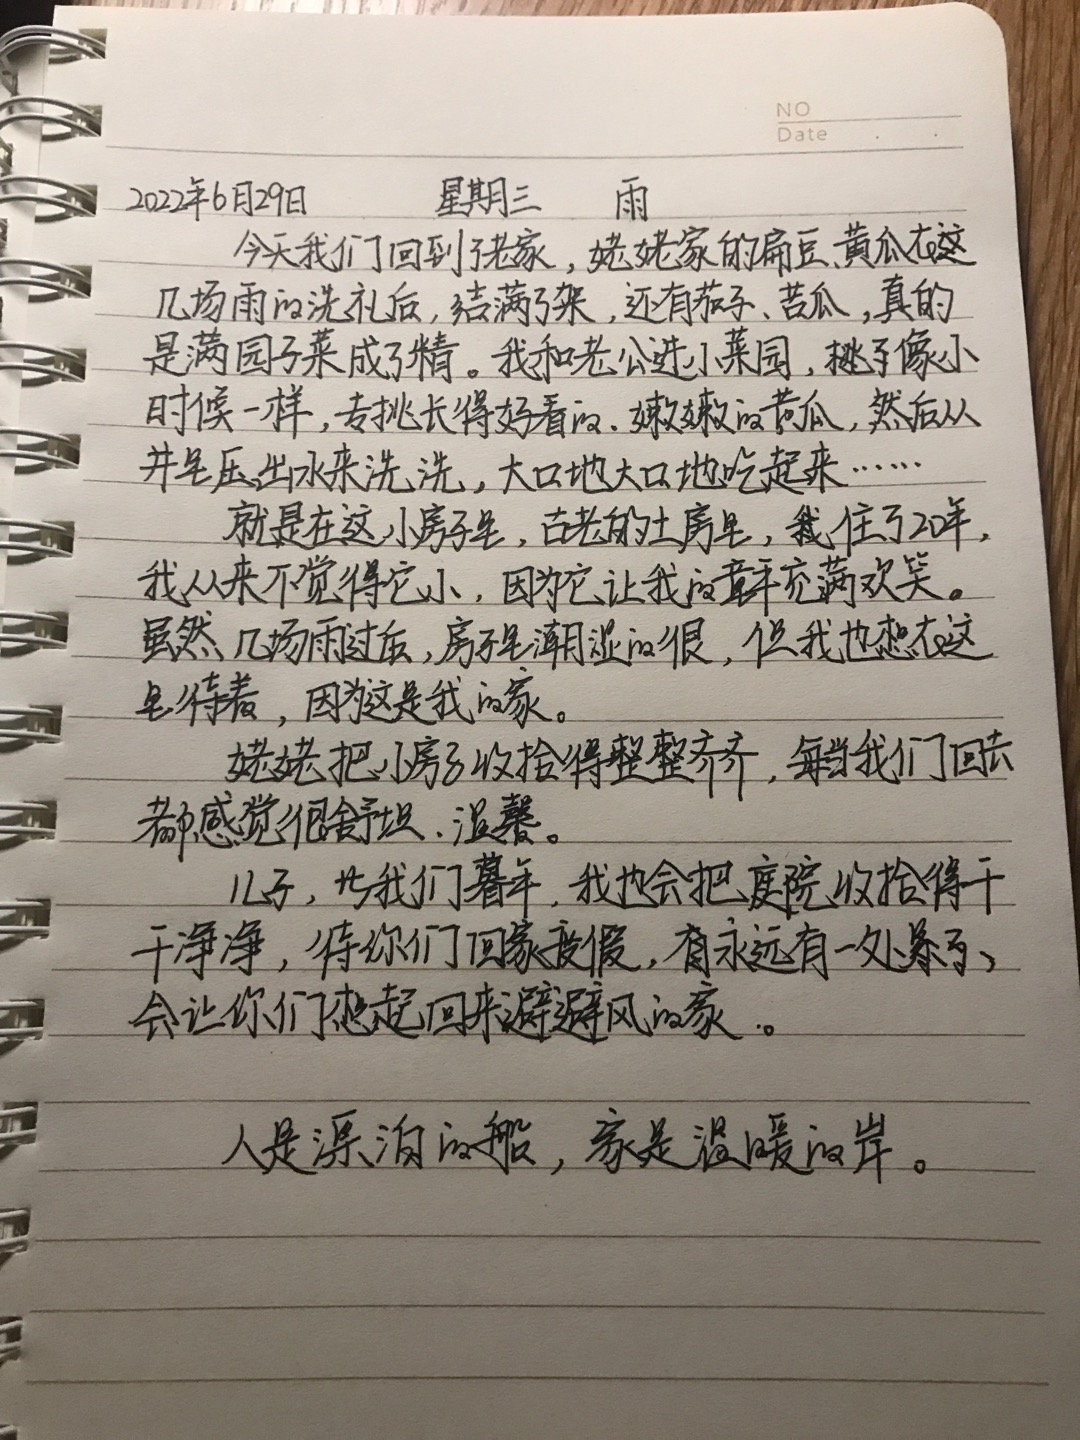 NO
Date . .
2022年6月29日 星期三 雨
今天我们回到了老家，姥姥家的扁豆、黄瓜在这
几场雨的洗礼后，结满了架，还有茄子、苦瓜，真的
是满园子菜成了精。我和老公进小菜园，挑了像小
时候一样，专挑长得好看的、嫩嫩的黄瓜，然后从
井里压出水来洗洗，大口地大口地吃起来……
就是在这小房子里，古老的土房里，我住了20年，
我从来不觉得它小，因为它让我的童年充满欢笑。
虽然几场雨过后，房子里潮湿的很，但我也想在这
里待着，因为这是我的家。
姥姥把小房子收拾得整整齐齐，每当我们回去
都感觉很舒坦、温馨。
儿子，等我们暮年，我也会把庭院收拾得干
干净净，待你们回家度假，有永远有一处
会让你们想起回来避避风的家。
人是漂泊的船，家是温暖的岸。